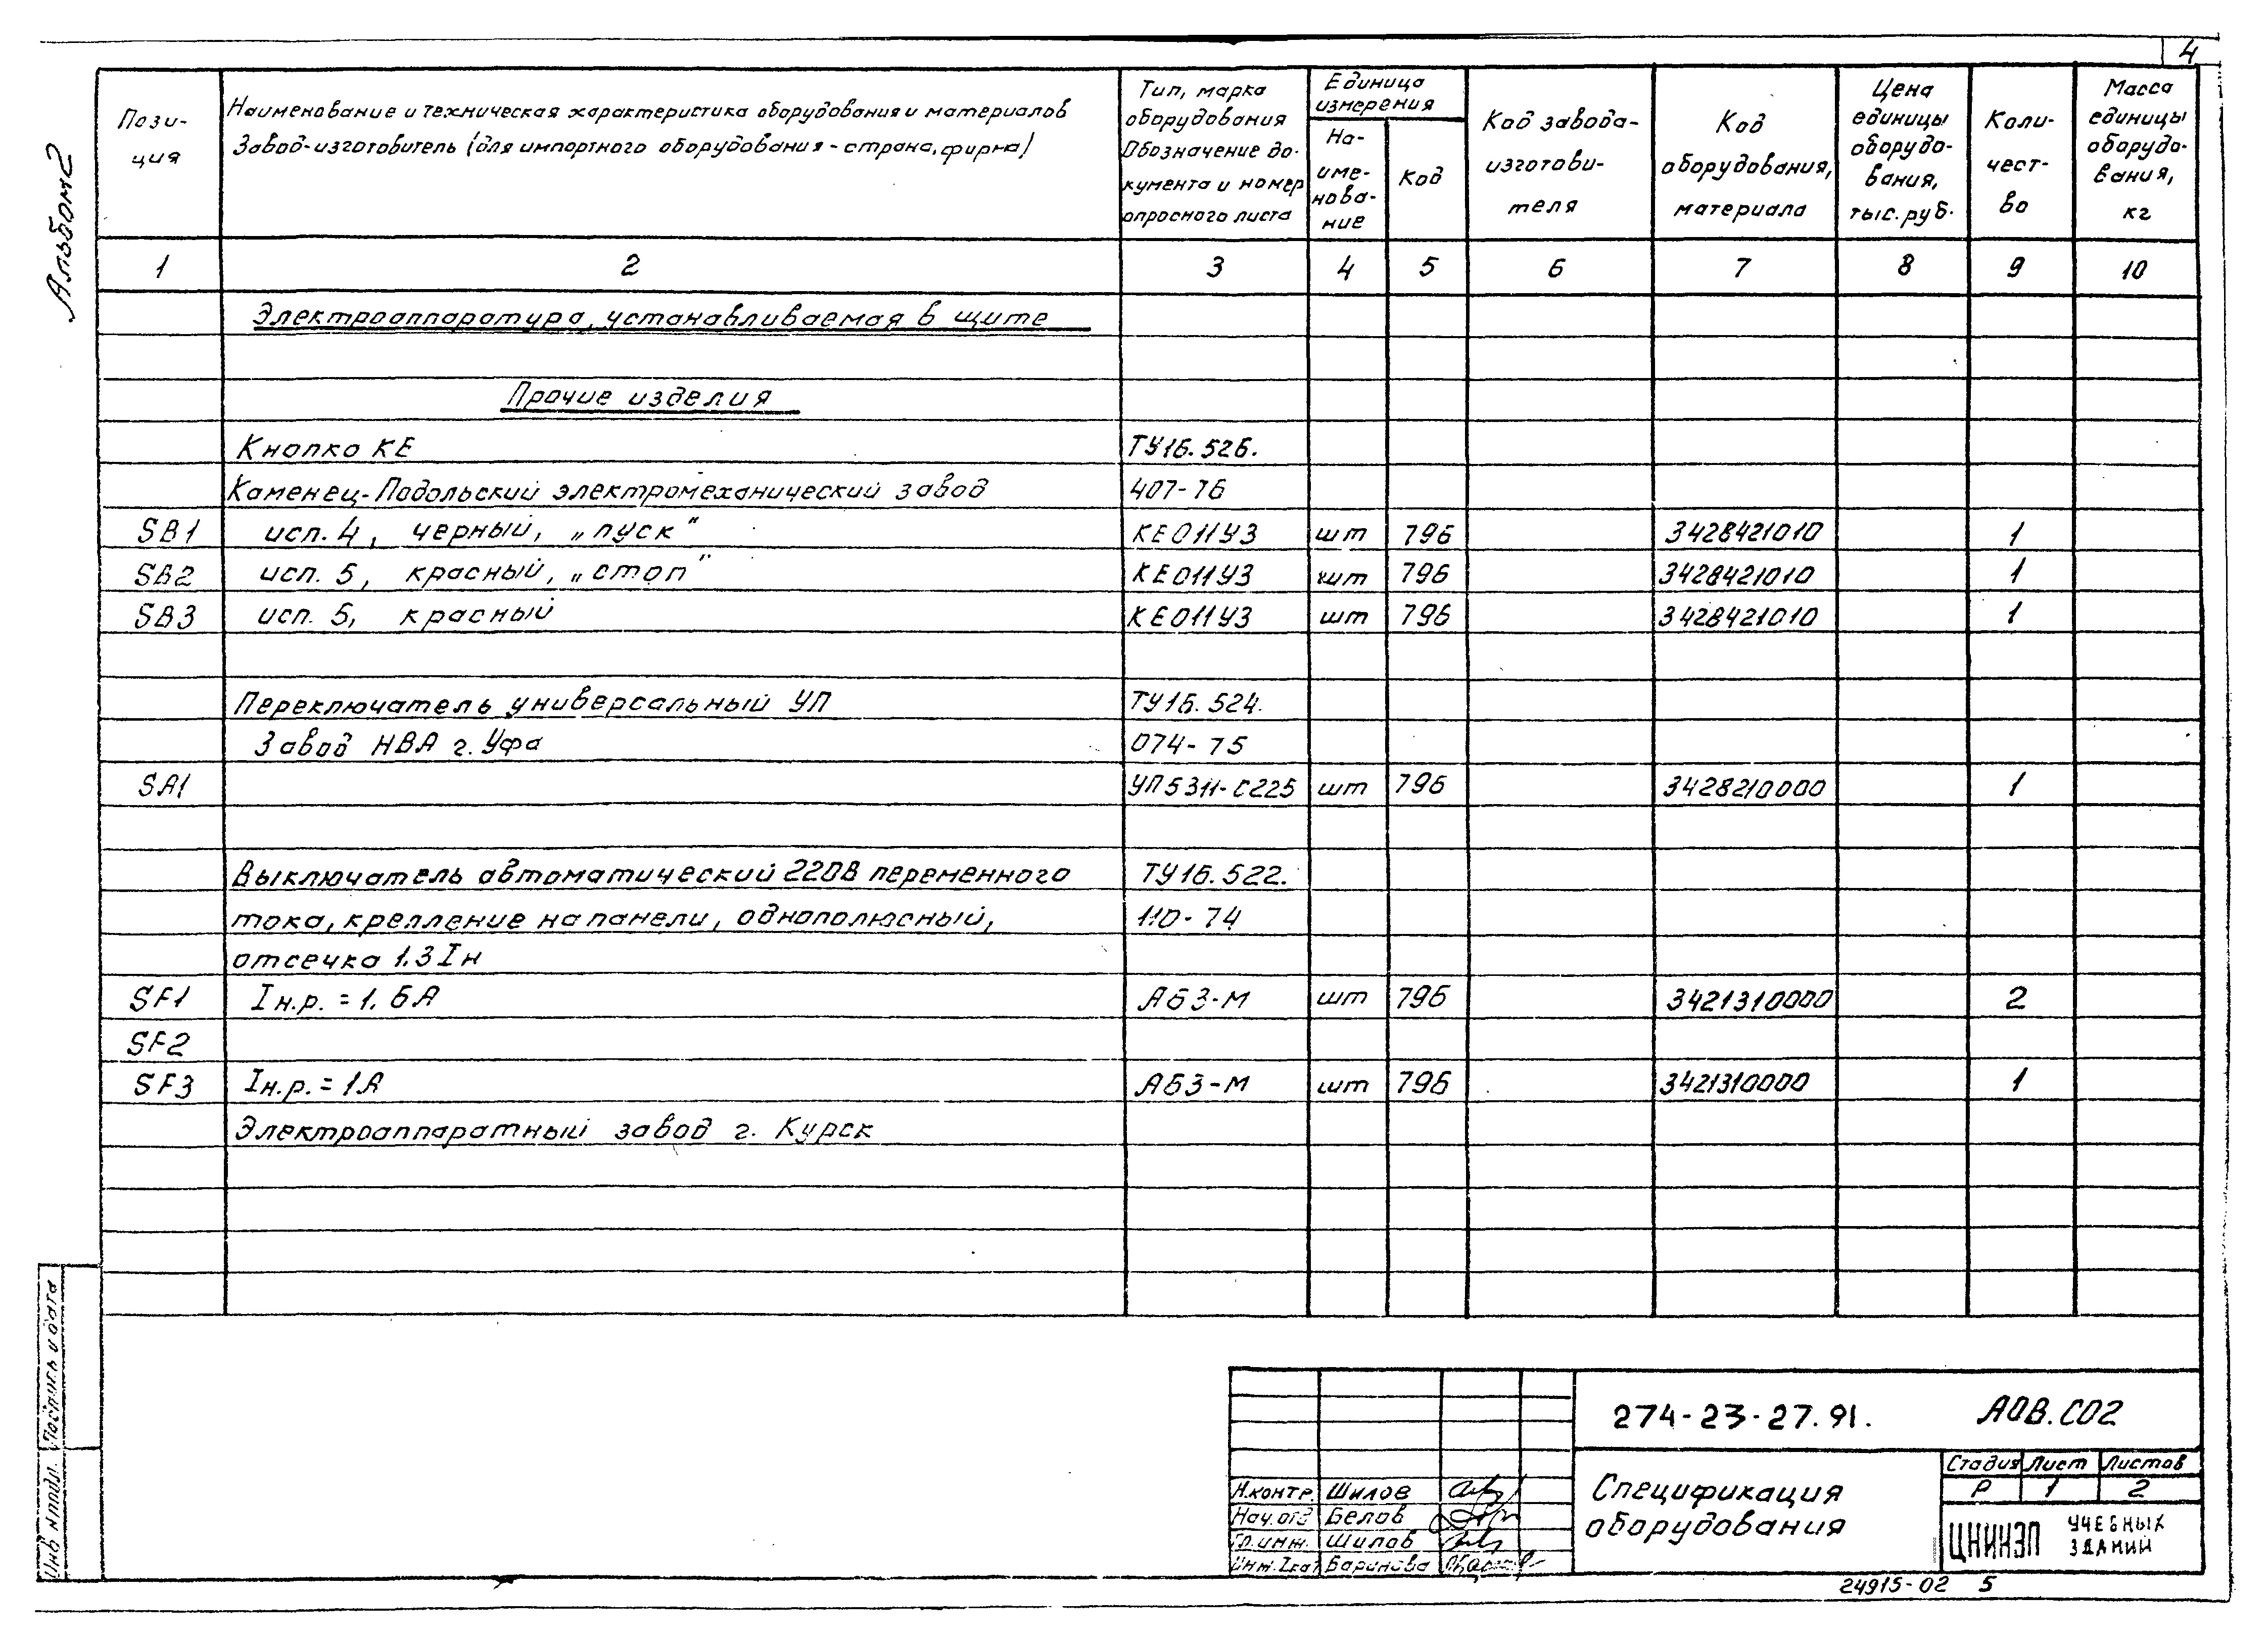 4
Альбом 2
Пози-
ция
Наименование и техническая характеристика оборудования и материалов
Завод-изготовитель (для импортного оборудования - страна, фирма)
Тип, марка
оборудования
Обозначение до-
кумента и номер
опросного листа
Единица
измерения
На-
име-
нова-
ние
Код
Код завода-
изготови-
теля
Код
оборудования,
материала
Цена
единицы
оборудо-
вания,
тыс. руб.
Коли-
чест-
во
Масса
единицы
оборудо-
вания,
кг
1 2 3 4 5 6 7 8 9 10
Электроаппаратура, устанавливаемая в щите
Прочие изделия
Кнопка КЕ ТУ16.526.
Каменец-Подольский электромеханический завод 407-76
SB1 исп. 4, черный, „пуск" КЕ011У3 шт 796 3428421010 1
SB2 исп. 5, красный, „стоп" КЕ011У3 шт 796 3428421010 1
SB3 исп. 5, красный КЕ011У3 шт 796 3428421010 1
Переключатель универсальный УП ТУ16.524.
Завод НВА г. Уфа 074-75
SA1 УП5311-С225 шт 796 3428210000 1
Выключатель автоматический 220В переменного ТУ16.522.
тока, крепление на панели, однополюсный, 110-74
отсечка 1.3Iн
SF1 Iн.р. = 1.6А А63-М шт 796 3421310000 2
SF2
SF3 Iн.р. = 1А А63-М шт 796 3421310000 1
Электроаппаратный завод г. Курск
Подпись и дата
Инв. N подл.
274-23-27.91. АОВ.СО2
Спецификация
оборудования
Стадия Лист Листов
Р 1 2
Н.контр. Шилов
Нач.отд Белов
Гл.инж. Шилов
Инж.2кат Баринова
ЦНИИЭП УЧЕБНЫХ
ЗДАНИЙ
24915-02 5